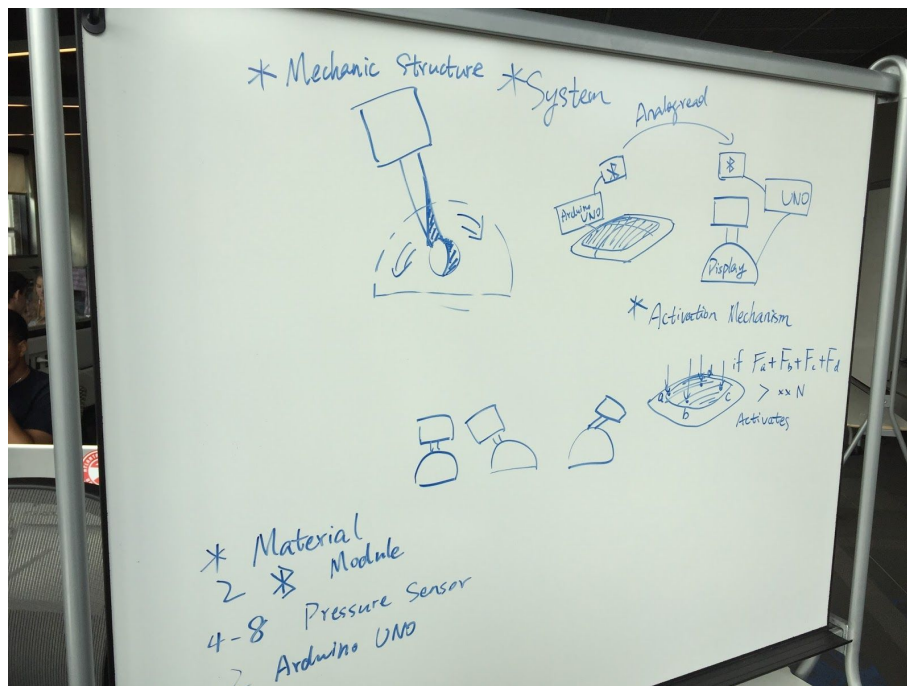 * Mechanic Structure
* System
Analogread
Arduino UNO
UNO
Display
* Activation Mechanism
if Fa+Fb+Fc+Fd
> xx N
Activates
a
b
c
d
* Material
2 Module
4-8 Pressure Sensor
Arduino UNO